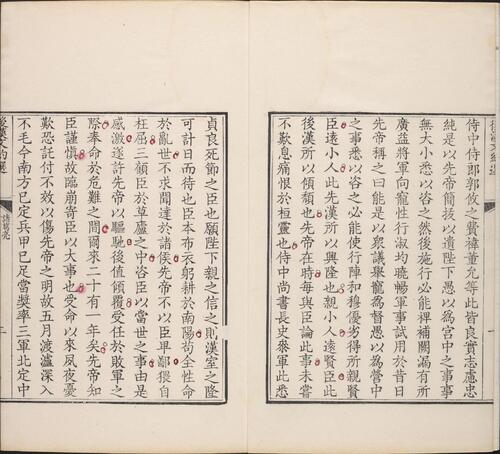 侍中侍郎郭攸之費禕董允等此皆良實志慮忠
純是以先帝簡拔以遺陛下愚以為宮中之事事
無大小悉以咨之然後施行必能裨補闕漏有所
廣益將軍向寵性行淑均曉暢軍事試用於昔日
先帝稱之曰能是以衆議舉寵為督愚以為營中
之事悉以咨之必能使行陣和穆優劣得所親賢
臣遠小人此先漢所以興隆也親小人遠賢臣此
後漢所以傾頹也先帝在時每與臣論此事未嘗
不歎息痛恨於桓靈也侍中尚書長史參軍此悉
貞良死節之臣也願陛下親之信之則漢室之隆
可計日而待也臣本布衣躬耕於南陽苟全性命
於亂世不求聞達於諸侯先帝不以臣卑鄙猥自
枉屈三顧臣於草廬之中咨臣以當世之事由是
感激遂許先帝以驅馳後值傾覆受任於敗軍之
際奉命於危難之間爾來二十有一年矣先帝知
臣謹慎故臨崩寄臣以大事也受命以來夙夜憂
歎恐託付不效以傷先帝之明故五月渡瀘深入
不毛今南方已定兵甲已足當獎率三軍北定中
後漢文約選 諸葛亮 二